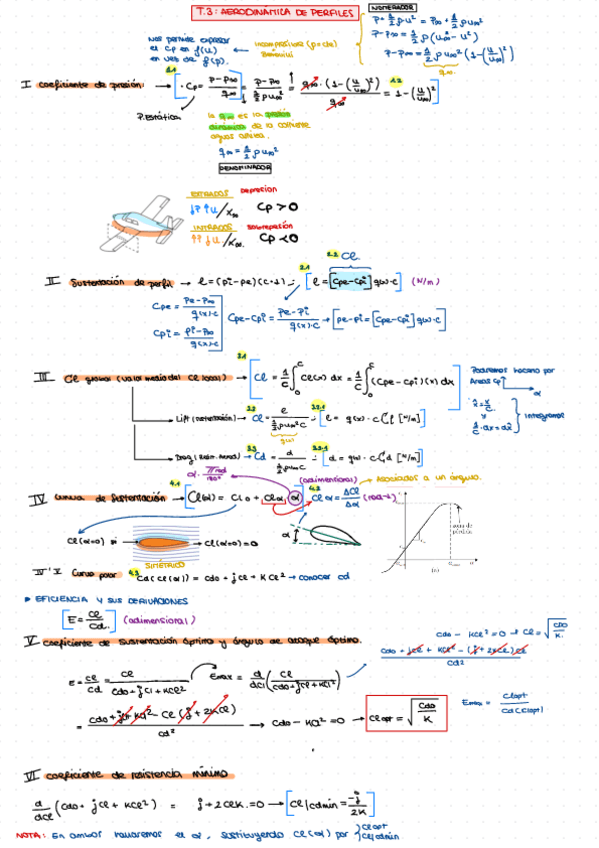 T.3: AERODINÁMICA DE PERFILES
NUMERADOR
P + 1/2 ρu² = P∞ + 1/2 ρu∞²
P - P∞ = 1/2 ρ(u∞² - u²)
P - P∞ = 1/2 ρu∞² (1 - (u/u∞)²)
q∞
nos permite expresar el Cp en f(u) en vez de f(p).
incompresible (ρ=cte)
Bernoulli
I coeficiente de presión:
1.1
Cp = P-P∞/q∞ = P-P∞ / 1/2 ρu∞² = q∞ · (1-(u/u∞)²) / q∞ = 1-(u/u∞)²
1.2
P. estática
la q∞ es la presión dinámica de la corriente aguas arriba.
q∞ = 1/2 ρu∞²
DENOMINADOR
EXTRADÓS depresión
↓P ↑u/x∞ Cp > 0
INTRADÓS sobrepresión
↑P ↓u/x∞. Cp < 0
II Sustentación de perfil → l = (pi-pe)(c·1);
2.1
2.2 Cl
[l = [Cpe-Cpi] q(x)·c] (N/m)
Cpe = Pe-P∞ / q(x)·c
Cpi = Pi-P∞ / q(x)·c
Cpe-Cpi = Pe-Pi / q(x)·c → [pe-pi = [Cpe-Cpi] q(x)·c]
III Cl global (valor medio del Cl local)
3.1
Cl = 1/c ∫₀ᶜ Cl(x) dx = 1/c ∫₀ᶜ (Cpe-Cpi)(x) dx
Podremos hacerlo por Áreas Cp
α
x̂ = x/c
1/c · dx = dx̂
integramos
Lift (sustentación)
Cl = l / 1/2 ρu∞²c
l = q(x)·c·Cl [N/m]
Drag (Resist. Aerod)
Cd = d / 1/2 ρu∞²c
d = q(x)·c·Cd [N/m]
α · π rad / 180°
IV Curva de Sustentación
4.1
[Cl(α) = Cl0 + Clα · α]
4.2
(adimensional)
Clα = ΔCl/Δα (rad-1)
Asociados a un ángulo.
Cl(α=0) si
Cl(α=0) = 0
SIMÉTRICO
α
(a)
IV'' Curva polar
4.3
Cd(Cl(α)) = Cd0 + jCl + KCl² → conocer cd
EFICIENCIA Y SUS DERIVACIONES
[E = Cl/Cd.] (adimensional)
V coeficiente de sustentación óptimo y ángulo de ataque óptimo.
Cd0 - KCl² = 0 → Cl = √Cd0/K.
E = Cl/Cd = Cl / Cd0+jCl+KCl²
Emax = d/dCl (Cl / Cd0+jCl+KCl²)
Cd0 + jCl + KCl² - (j + 2KCl)Cl / Cd²
= Cd0 + jCl + KCl² - Cl (j + 2KCl) / Cd² → Cd0 - KCl² = 0 → Clopt = √Cd0/K
Emax = Clopt / Cd(Clopt)
VI coeficiente de resistencia mínimo
d/dCl (Cd0 + jCl + KCl²) = j + 2ClK = 0 → [Cl|cdmin = -j/2K]
NOTA: En ambos hallaremos el α, sustituyendo Cl(α) por { Clopt Cl|cdmin